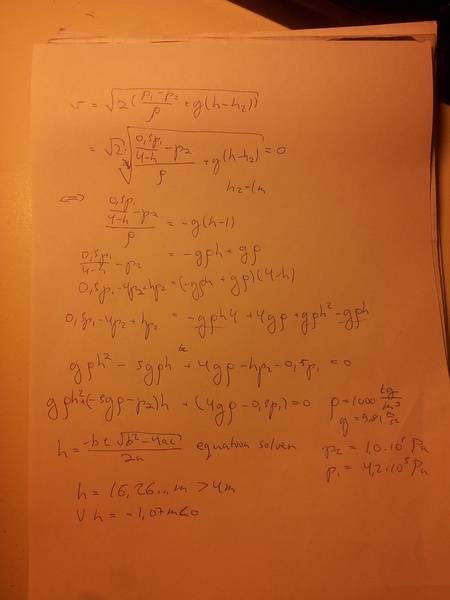 v = √2(\frac{p₁-p₂}{ρ} + g(h-h₂))
= √2·√\frac{\frac{0,5p₁}{4-h}-p₂}{ρ} + g(h-h₂) = 0
h₂=1m
⇔ \frac{\frac{0,5p₁}{4-h}-p₂}{ρ} = -g(h-1)
\frac{0,5p₁}{4-h}-p₂ = -gρh + gρ
0,5p₁-4p₂+hp₂=(-gρh + gρ)(4-h)
0,5p₁-4p₂+hp₂ = -gρh4 + 4gρ +gρh² -gρh
gρh² - 5gρh + 4gρ -hp₂ -0,5p₁ = 0
gρh²+(-5gρ-p₂)h + (4gρ-0,5p₁)=0 ρ=1000 \frac{kg}{m³}
g=9,81 \frac{m}{s²}
h = \frac{-b±√b²-4ac}{2a} equation solver p₂ = 1,0·10⁵ Pa
p₁ = 4,2·10⁵ Pa
h = 16,26...m > 4m
V h = -1,07m<0